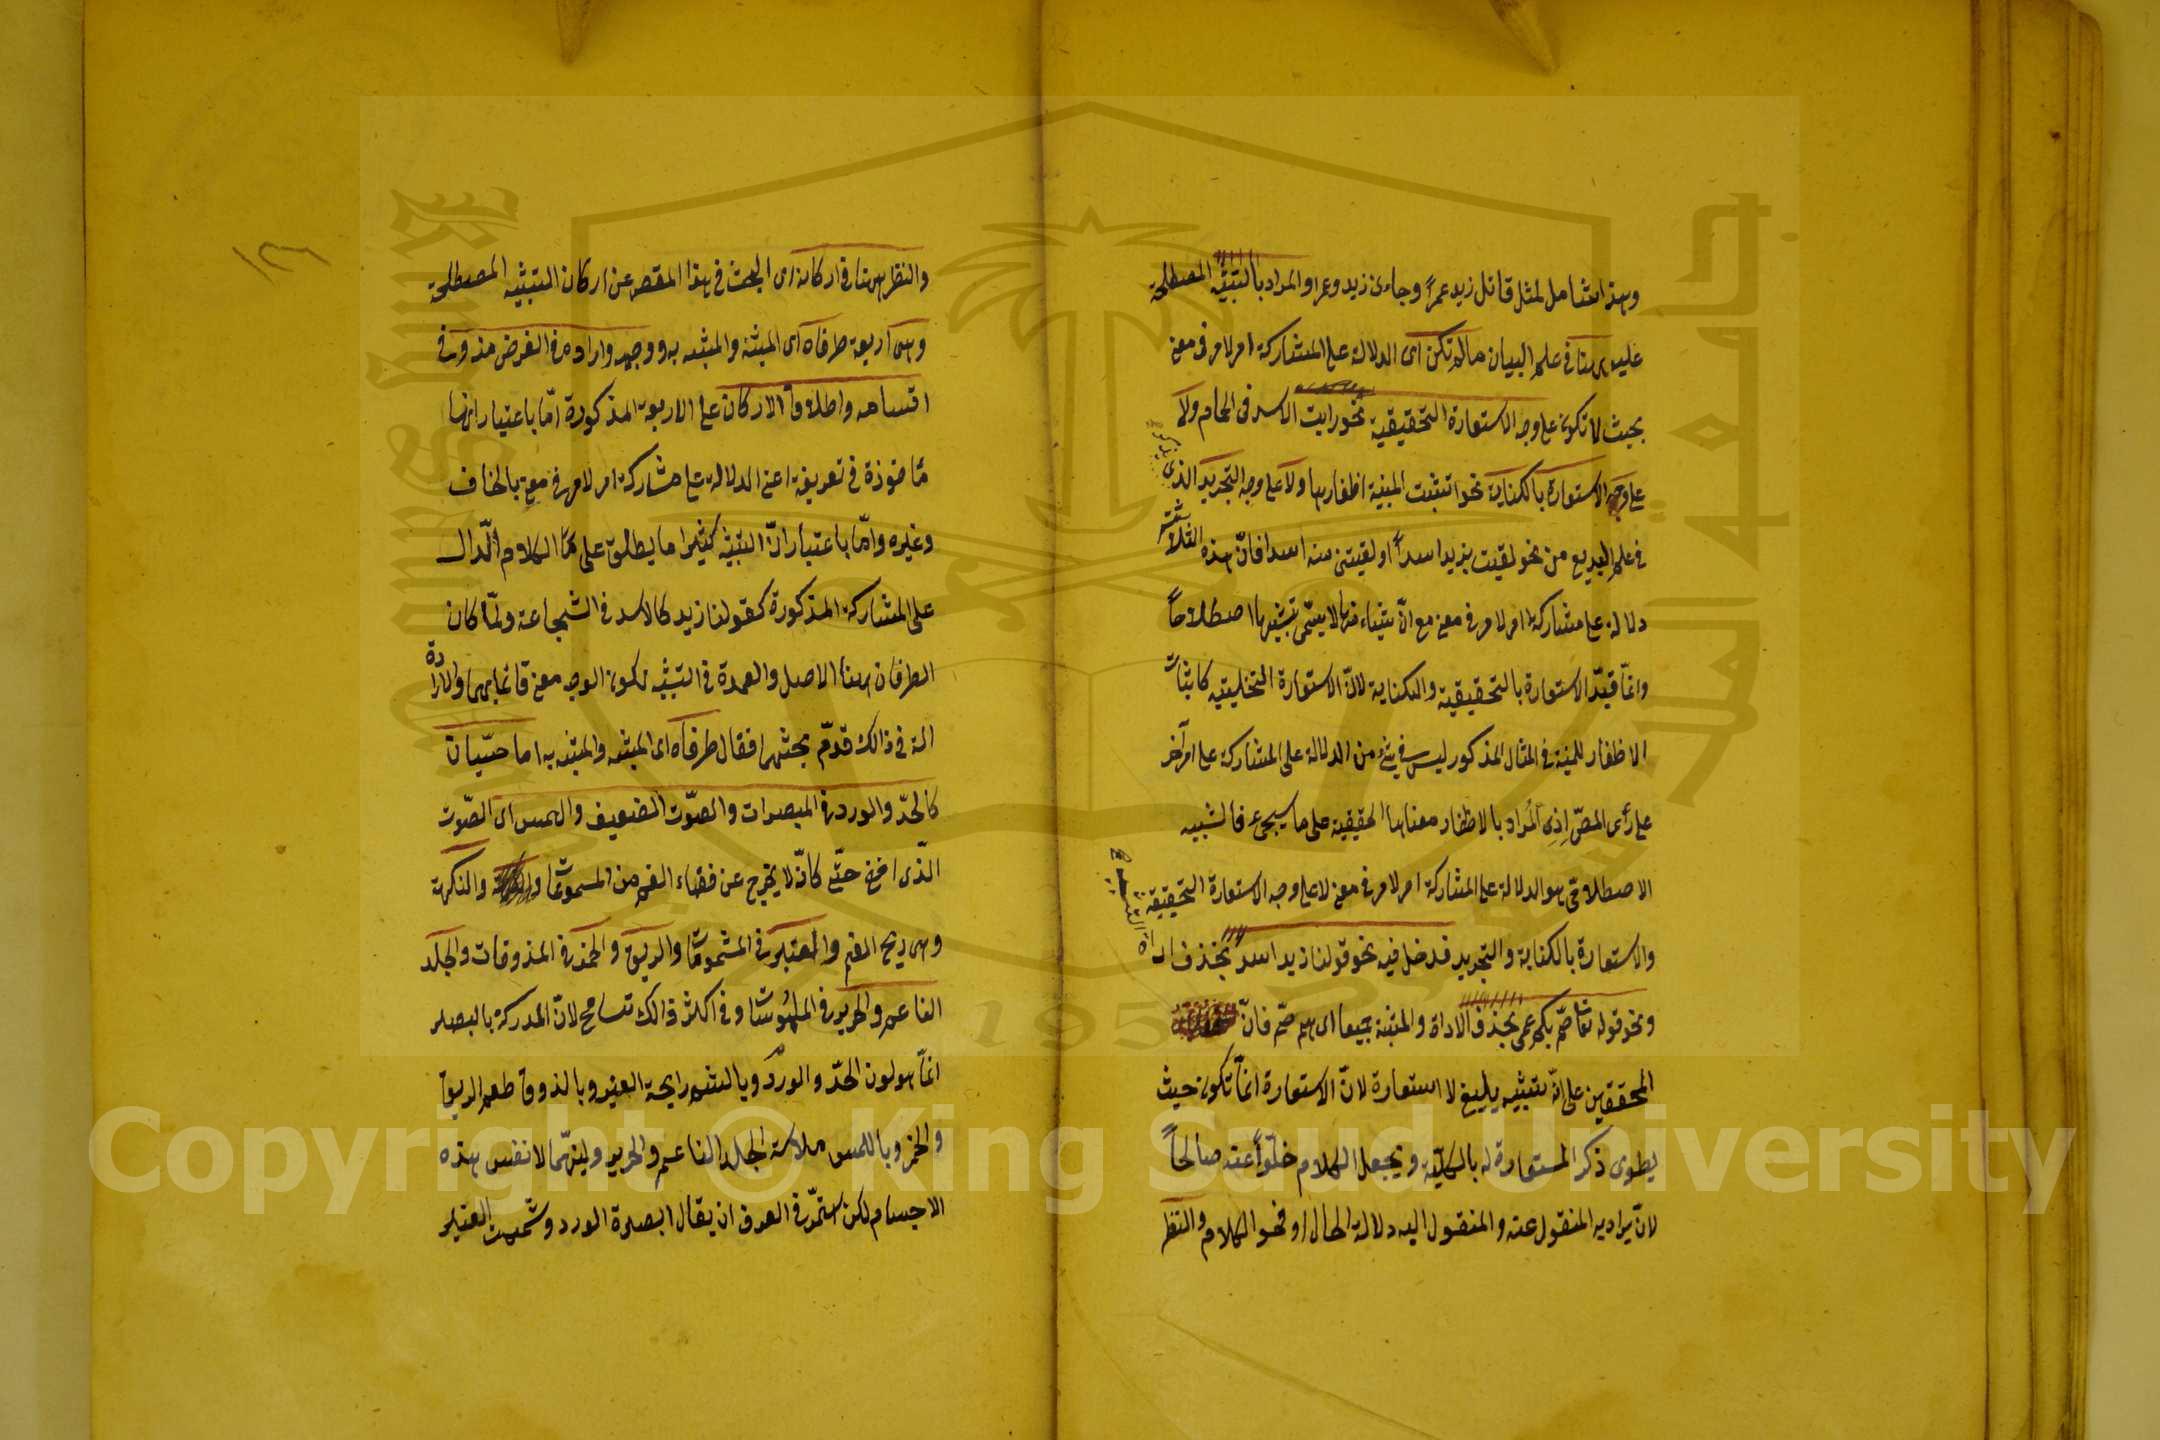 وهذا شامل لمثل قاتل زيد عمراً وجاءنى زيد وعمرو المراد بالتشبيه المصطلح
عليه ههنا فى علم البيان ما لم تكن اى الدلالة على المشاركة امر لامر فى معنى
بحيث لا تكون على وجه الاستعارة التحقيقية نحو رايت الاسد فى الحمام ولا
على وجه الاستعارة بالكناية نحو انشبت المنية اظفارها ولا على وجه التجريد الذى يذكر
فى علم البديع من نحو لقيت بزيد اسداً او لقيتنى منه اسد فانّ هذه الثلاثة
دلالة على مشاركة امر لامر فى معنى مع انّ شيئاء منها لا يسمّى تشبيها اصطلاحاً
وانّما قيّد الاستعارة بالتحقيقية والكناية لانّ الاستعارة التخليتيه كاثبات
الاظفار للمنية فى المثال المذكور ليس فى شئ من الدلالة على المشاركة على امر آخر
على رأى المصّ اذ المراد بالاظفار معناها الحقيقية على ما سيجئ فالتشبيه
الاصطلاحىّ هو الدلالة على المشاركة امر لامر فى معنى لا على وجه الاستعارة التحقيقية
والاستعارة بالكناية والتجريد فدخل فيه نحو قولنا زيد اسدٌ بحذف اداة التشبيه
ونحو قوله تعا صمّ بكم عمى بحذف الاداة والمشبّه جميعا اى هم صمّ فانّ
المحققين على انّه تشبيه بليغ لا استعارة لانّ الاستعارة انّما تكون حيث
يطوى ذكر المستعارة له بالكلّيّة ويجعل الكلام خلوّاً عنه صالحاً
لانّ يراد به المنقول عنه والمنقول اليه دلالة الحال او فحو الكلام والنظر
١٢٦
والنظر ههنا فى اركانه اى البحث فى هذا المقصد عن اركان التشبيه المصطلحة
وهى اربعة طرفاه اى المشبّه والمشبّه به ووجهه واداته وفى الغرض منه وفى
اقسامه واطلاق الاركان على الاربعة المذكورة امّا باعتبار انها
مأخوذة فى تعريفه اعنى الدلالة على مشاركة امر لامر فى معنى بالكاف
وغيره وامّا باعتبار انّ التشبيه كثيرا ما يطلق على الكلام الدّال
على المشاركة المذكورة كقولنا زيد كالاسد فى الشجاعة ولمّا كان
الطرفان هما الاصل والعمدة فى التشبيه لكون الوجه معنى قائما بهما والاداة
الة فى ذالك قدّم بحثهما فقال طرفاه اى المشبه والمشبه به اما حسّيان
كالخدّ والورد فى المبصرات والصّوت الضعيف والهمس اى الصّوت
الذّى اخفى حتّى كانّه لا يخرج عن فضاء الفم من المسموعات والنكهة
وهى ريح الفم والعنبر فى المشمومات والريق والخمر فى المذوقات والجلد
الناعم والحرير فى الملموسات وفى اكثر ذالك تسامح لانّ المدركة بالبصر
انّما هو لون الخدّ والورد وبالشم رايحة العنبر وبالذوق طعم الريق
والخمر وباللمس ملاسة الجلد الناعم والحرير ولينهما لا نفس هذه
الاجسام لكن استمرّ فى العرف ان يقال ابصرة الورد وشممت العنبر
Copyright © King Saud University
King Saud University
جامعة الملك سعود
195